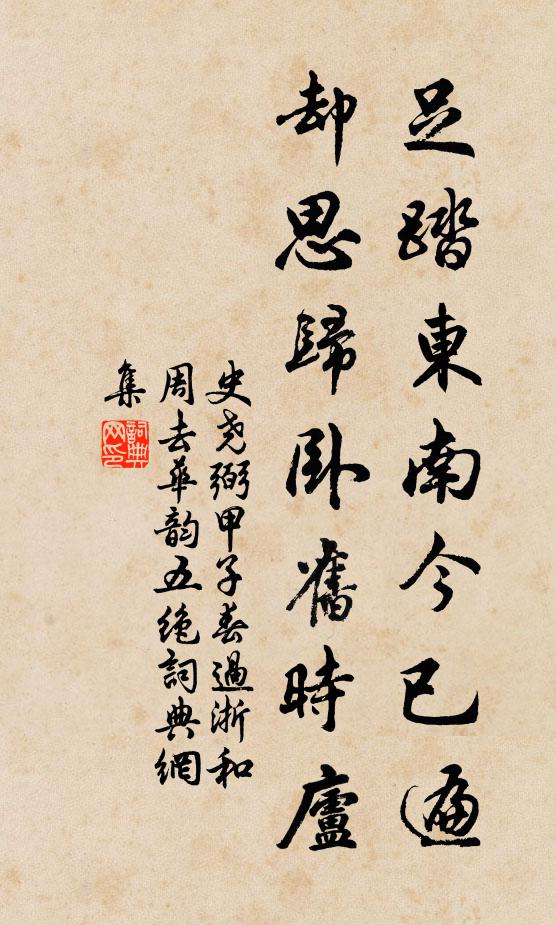 足踏東南今已遍
却思歸臥舊時廬
史尧弼甲子春過浙和
周去華韵五绝詞典網
集
詞典
网印